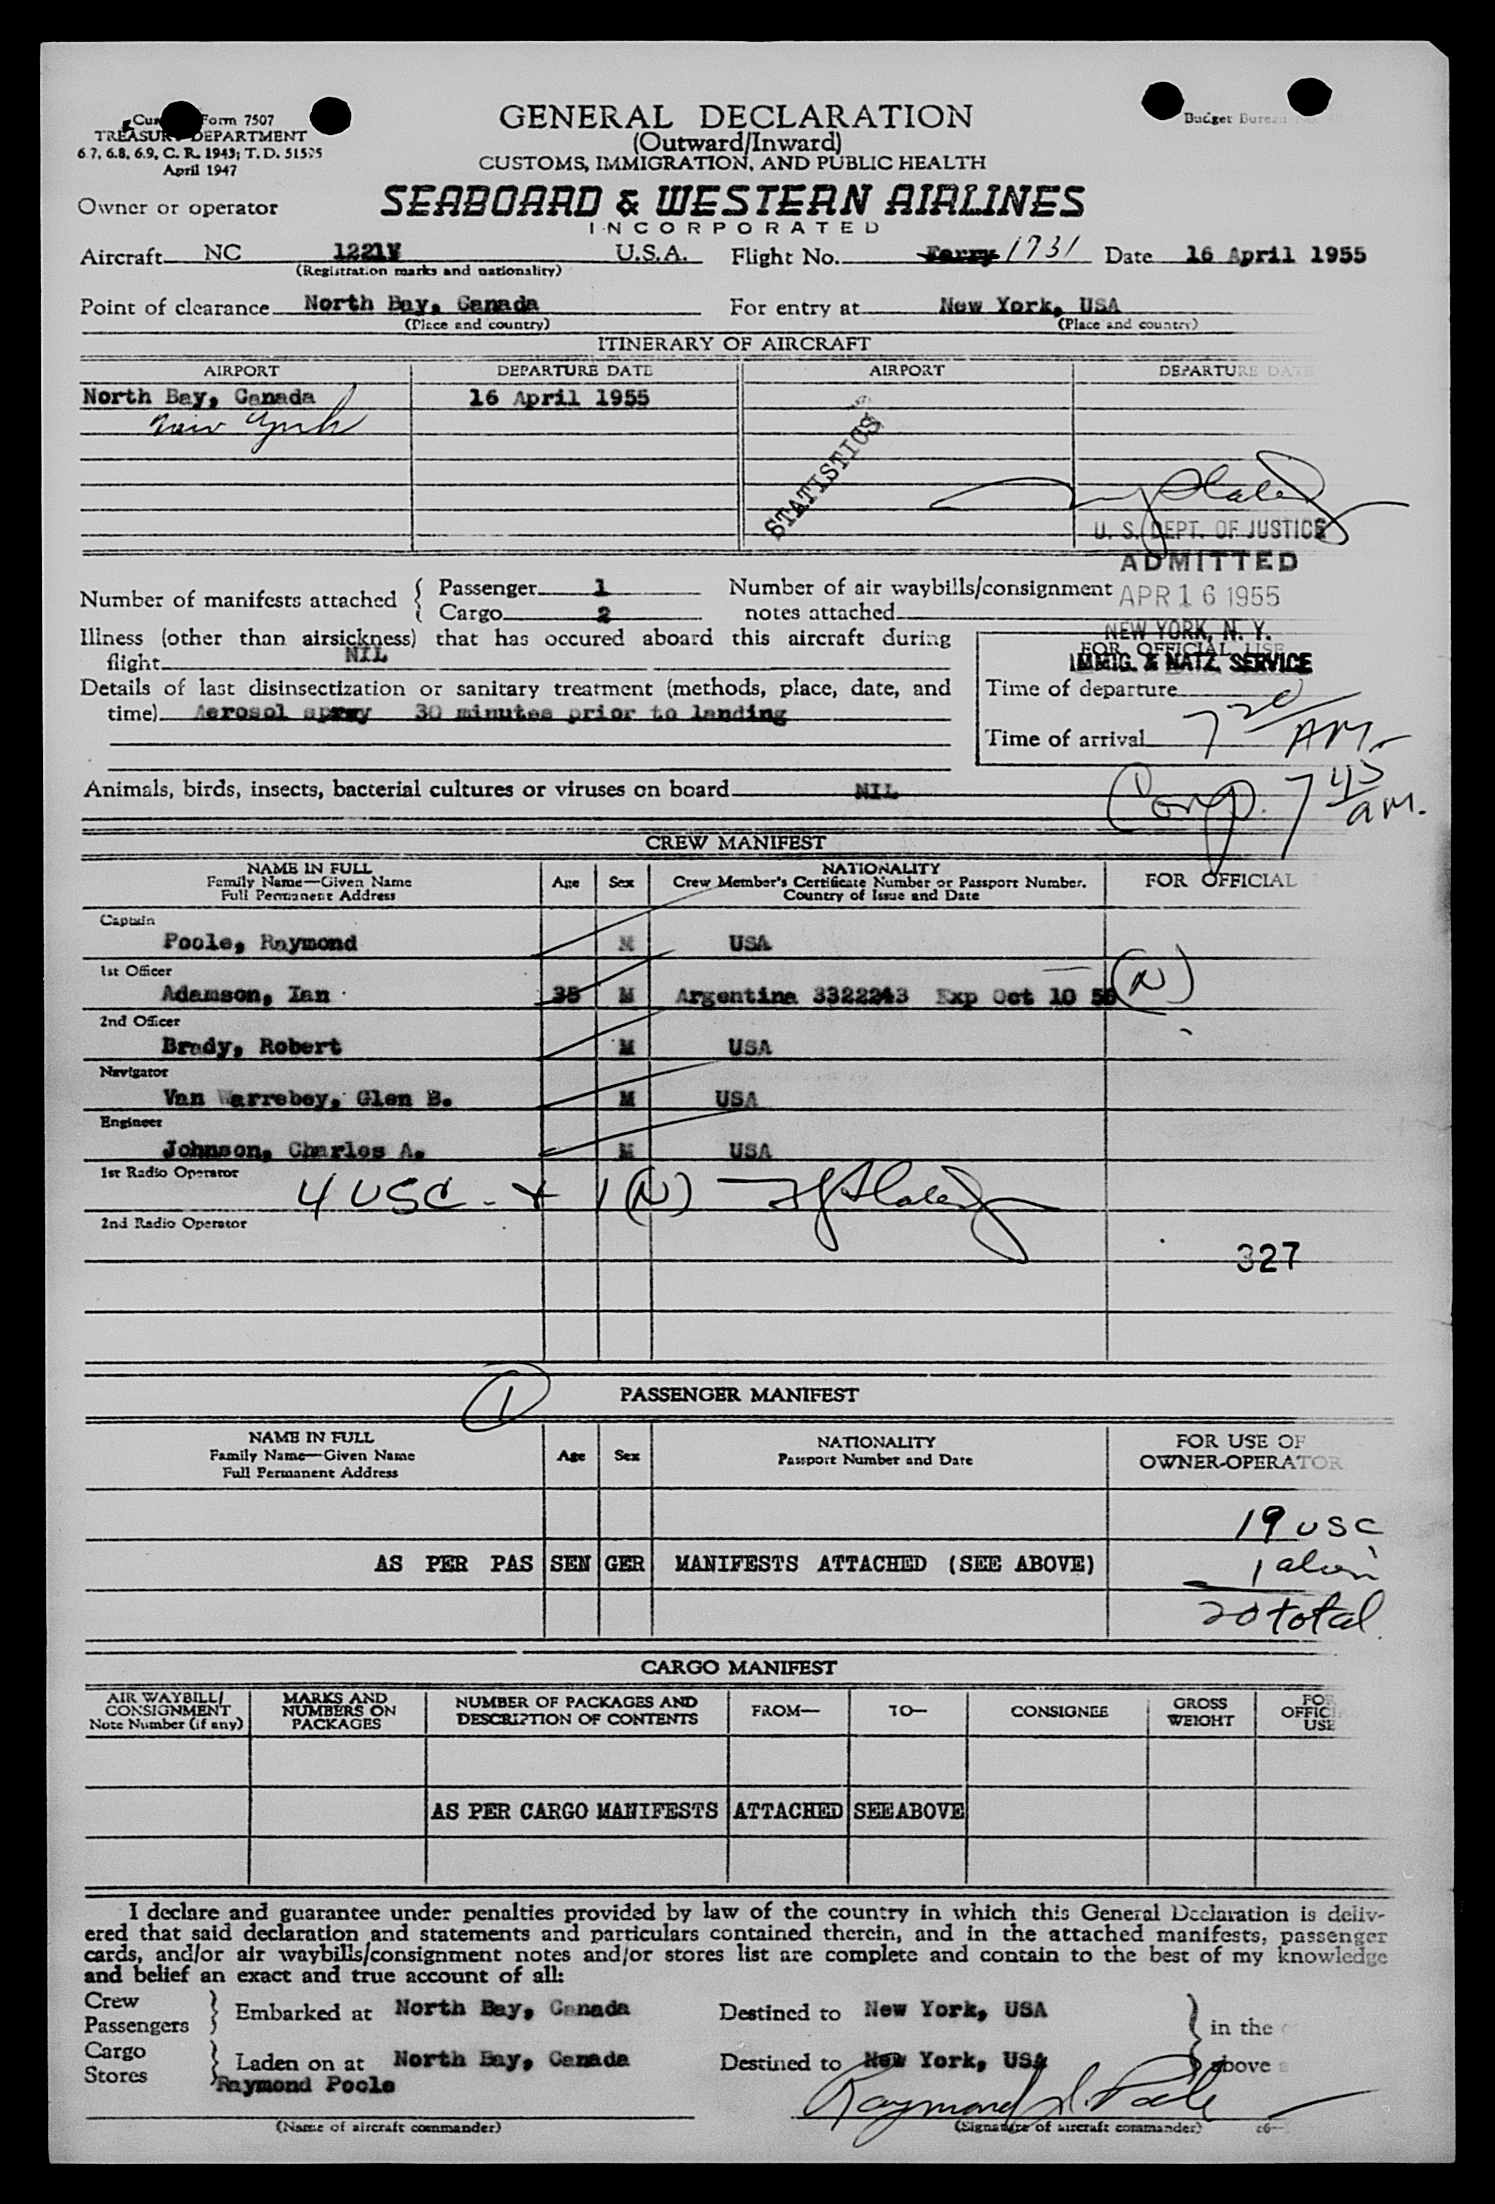 Form 7507
TREASURY DEPARTMENT
6.7, 6.8, 6.9, C. R. 1943; T. D. 51575
April 1947
Budget Bureau
GENERAL DECLARATION
(Outward/Inward)
CUSTOMS, IMMIGRATION, AND PUBLIC HEALTH
Owner or operator
SEABOARD & WESTERN AIRLINES
INCORPORATED
Aircraft NC 1221V U.S.A. Flight No. Ferry 1731 Date 16 April 1955
(Registration marks and nationality)
Point of clearance North Bay, Canada For entry at New York, USA
(Place and country) (Place and country)
ITINERARY OF AIRCRAFT
AIRPORT DEPARTURE DATE AIRPORT DEPARTURE DATE
North Bay, Canada 16 April 1955
New York
STATISTICS
U. S. DEPT. OF JUSTICE
ADMITTED
APR 16 1955
NEW YORK, N. Y.
IMMIG. & NATZ. SERVICE
Number of manifests attached { Passenger 1
Cargo 2
Number of air waybills/consignment
notes attached
Illness (other than airsickness) that has occured aboard this aircraft during
flight NIL
Details of last disinsectization or sanitary treatment (methods, place, date, and
time) Aerosol spray 30 minutes prior to landing
FOR OFFICIAL USE
Time of departure
Time of arrival 7 20 AM
Comp. 7 45 am.
Animals, birds, insects, bacterial cultures or viruses on board NIL
CREW MANIFEST
NAME IN FULL
Family Name—Given Name
Full Permanent Address
Age Sex
NATIONALITY
Crew Member's Certificate Number or Passport Number.
Country of Issue and Date
FOR OFFICIAL
Captain
Poole, Raymond M USA
1st Officer
Adamson, Ian 38 M Argentina 3322243 Exp Oct 10 56 (N)
2nd Officer
Brady, Robert M USA
Navigator
Van Warrebey, Glen B. M USA
Engineer
Johnson, Charles A. M USA
1st Radio Operator
4 USC - + 1 (N)
2nd Radio Operator
327
1
PASSENGER MANIFEST
NAME IN FULL
Family Name—Given Name
Full Permanent Address
Age Sex
NATIONALITY
Passport Number and Date
FOR USE OF
OWNER-OPERATOR
19 USC
AS PER PAS SEN GER MANIFESTS ATTACHED (SEE ABOVE)
1 alien
20 total
CARGO MANIFEST
AIR WAYBILL/
CONSIGNMENT
Note Number (if any)
MARKS AND
NUMBERS ON
PACKAGES
NUMBER OF PACKAGES AND
DESCRIPTION OF CONTENTS
FROM— TO— CONSIGNEE
GROSS
WEIGHT
FOR
OFFICIAL
USE
AS PER CARGO MANIFESTS ATTACHED SEE ABOVE
I declare and guarantee under penalties provided by law of the country in which this General Declaration is deliv-
ered that said declaration and statements and particulars contained therein, and in the attached manifests, passenger
cards, and/or air waybills/consignment notes and/or stores list are complete and contain to the best of my knowledge
and belief an exact and true account of all:
Crew
Passengers } Embarked at North Bay, Canada Destined to New York, USA
in the
Cargo
Stores } Laden on at North Bay, Canada Destined to New York, USA
above
Raymond Poole
Raymond J. Poole
(Name of aircraft commander) (Signature of aircraft commander)